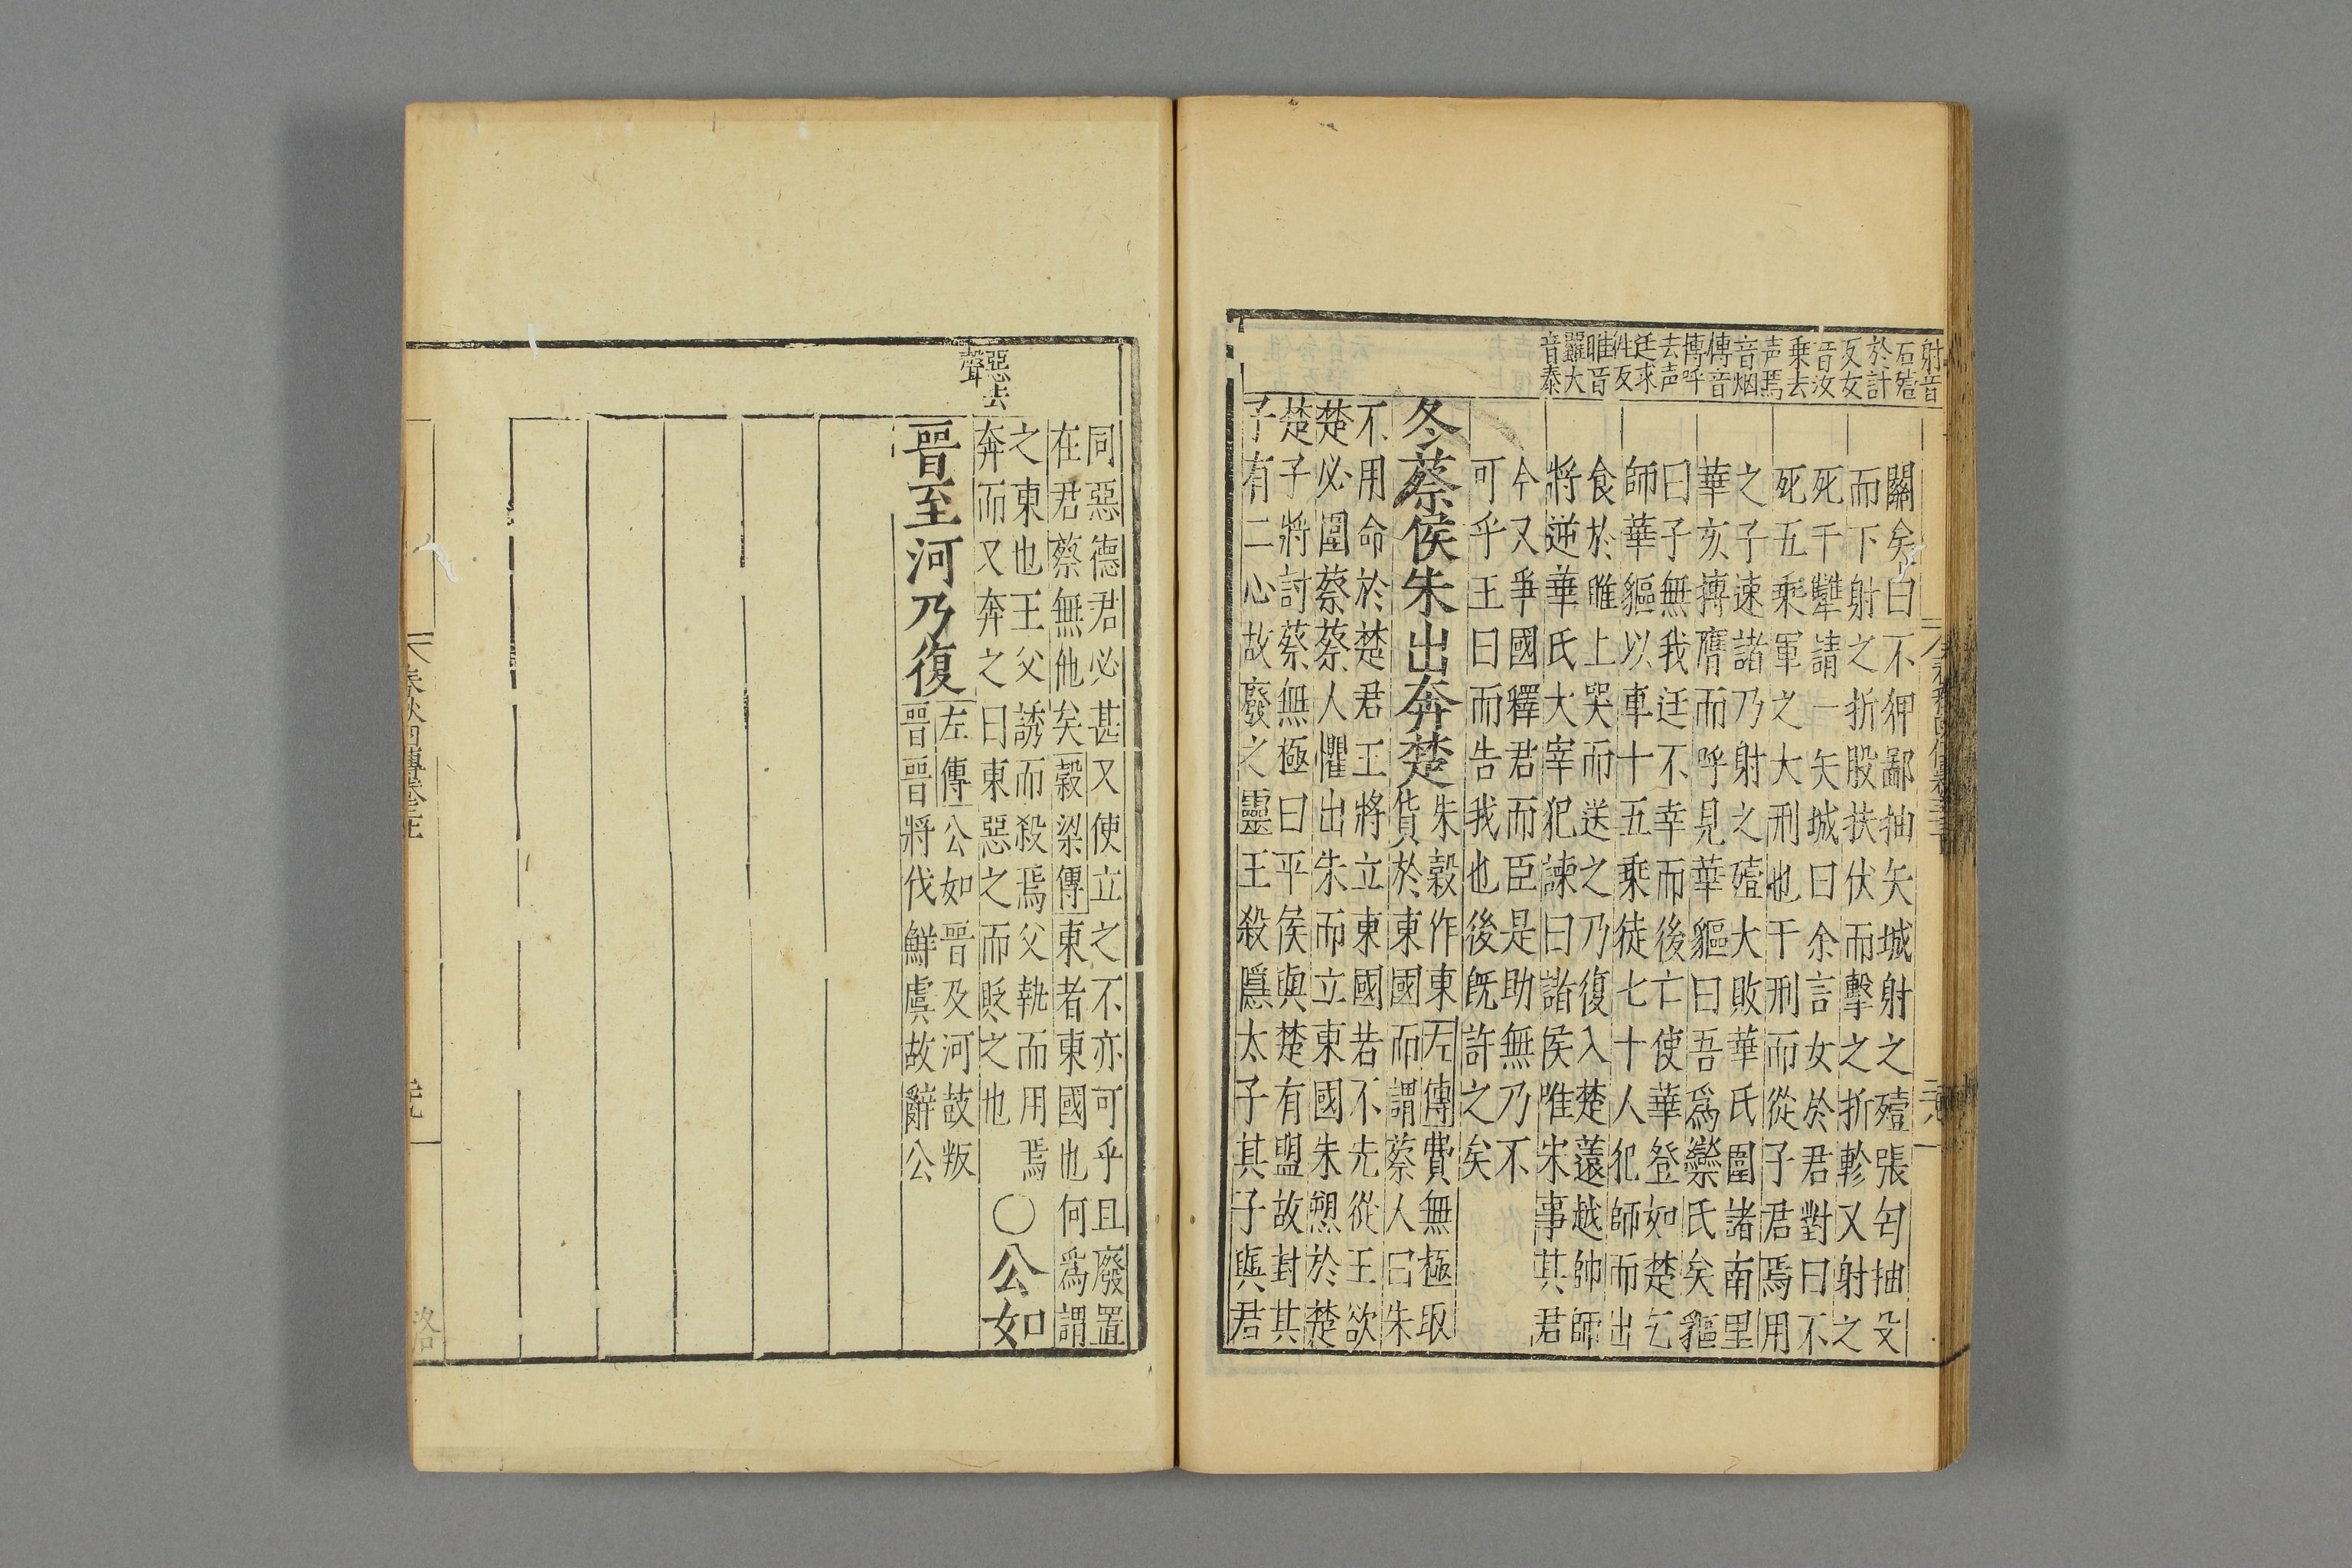 射音
石殪
於計
反女
音汝
乗去
声焉
音烟
傳音
摶呼
去声
廷求
徃反
睢音
大
音泰
關矣曰不狎鄙抽矢城射之殪張匄抽殳
而下射之折股扶伏而擊之折軫又射之
死干犨請一矢城曰余言女於君對曰不
死五乗軍之大刑也干刑而從子君焉用
之子速諸乃射之殪大敗華氏圍諸南里
華亥摶膺而呼見華貙曰吾爲欒氏矣貙
曰子無我迋不幸而後亡使華登如楚乞
師華貙以車十五乗徒七十人犯師而出
食於睢上哭而送之乃復入楚薳越帥師
將逆華氏大宰犯諫曰諸侯唯宋事其君
今又爭國釋君而臣是助無乃不
可乎王曰而告我也後旣許之矣
冬蔡侯朱出奔楚
朱穀作東左傳費無極取
貨於東國而謂蔡人曰朱
不用命於楚君王將立東國若不先從王欲
楚必圍蔡蔡人懼出朱而立東國朱愬於楚
楚子將討蔡無極曰平侯與楚有盟故封其
子有二心故廢之靈王殺隱太子其子與君
惡去
聲
同惡德君必甚又使立之不亦可乎且廢置
在君蔡無他矣穀梁傳東者東國也何爲謂
之東也王父誘而殺焉父執而用焉
奔而又奔之曰東惡之而貶之也
〇公如
晉至河乃復
左傳公如晉及河鼓叛
晉晉將伐鮮虞故辭公
春秋四傳卷三
洛